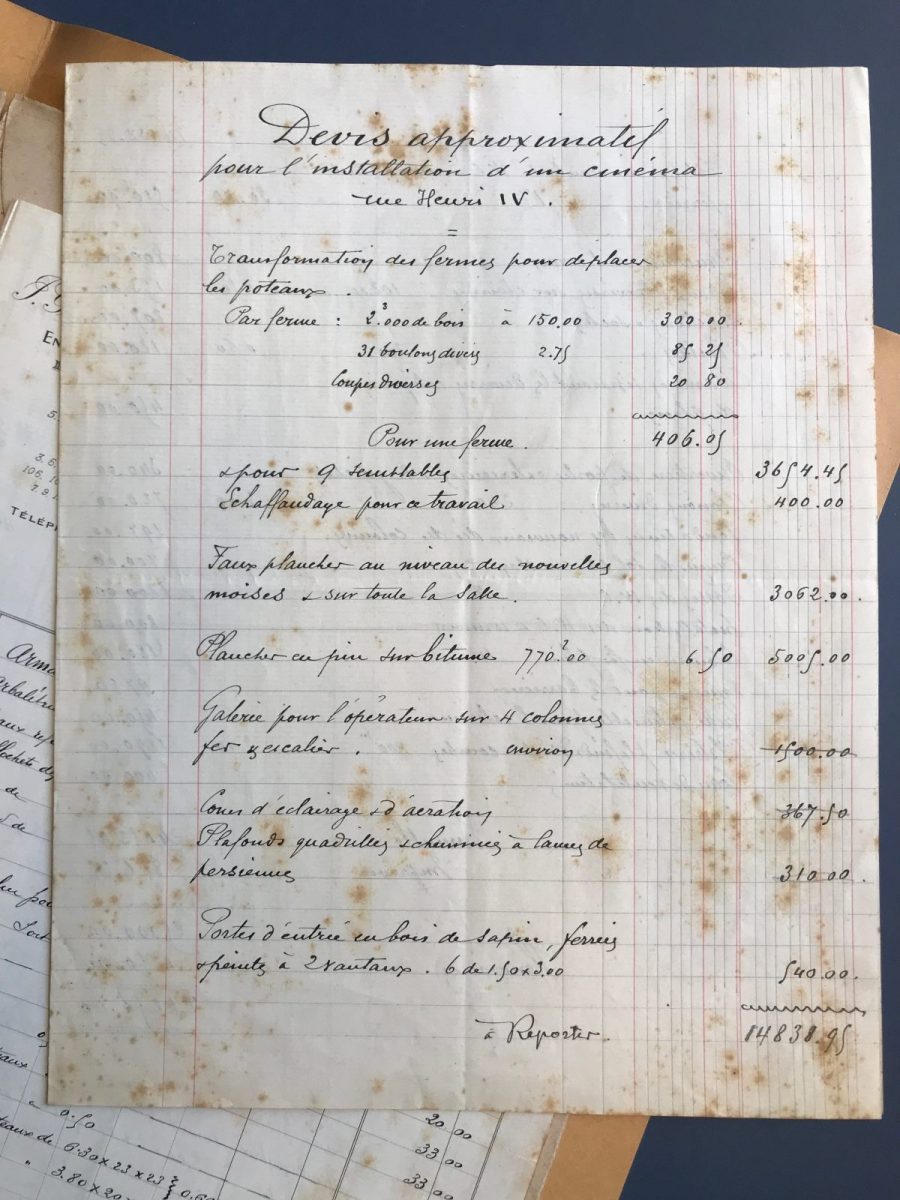 Devis approximatif
pour l'installation d'un cinéma
rue Henri IV.
=
Transformation des fermes pour déplacer
les poteaux.
Par ferme : 2³.000 de bois à 150.00 300 00.
31 boulons divers 2.75 85 25
Coupes diverses 20 80
Pour une ferme. 406.05
& pour 9 semblables 3654.45
Echaffaudage pour ce travail 400.00
Faux plancher au niveau des nouvelles
moises & sur toute la salle. 3062.00.
Plancher en pin sur bitume 770².00 6.50 5005.00
Galerie pour l'opérateur sur 4 colonnes
fer & escalier. environ 1500.00
d'éclairage & d'aération 367.50
Plafonds quadrillés & cheminées à lames de
persiennes 310.00.
Portes d'entrée en bois de sapin, ferrées
& peintes à 2 vantaux. 6 de 1.50x3.00 540.00.
à Reporter. 14838.95
EN
TÉLÉP
Arma
de
0.50 20 00
6.30x23x23 33 00
" 3.80x20 33 00